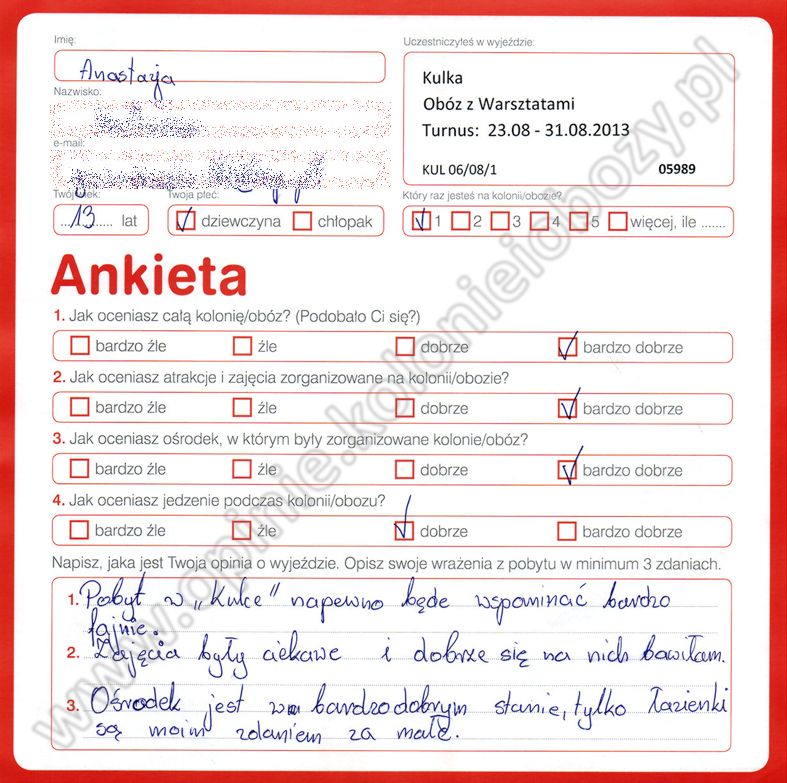 Imię:
Uczestniczyłeś w wyjeździe:
Anastazja
Kulka
Nazwisko:
Obóz z Warsztatami
Turnus: 23.08 - 31.08.2013
e-mail:
KUL 06/08/1 05989
Twój wiek:
Twoja płeć:
Który raz jesteś na kolonii/obozie?
...13...... lat
dziewczyna chłopak
1 2 3 4 5 więcej, ile .......
Ankieta
1. Jak oceniasz całą kolonię/obóz? (Podobało Ci się?)
bardzo źle źle dobrze bardzo dobrze
2. Jak oceniasz atrakcje i zajęcia zorganizowane na kolonii/obozie?
bardzo źle źle dobrze bardzo dobrze
3. Jak oceniasz ośrodek, w którym były zorganizowane kolonie/obóz?
bardzo źle źle dobrze bardzo dobrze
4. Jak oceniasz jedzenie podczas kolonii/obozu?
bardzo źle źle dobrze bardzo dobrze
Napisz, jaka jest Twoja opinia o wyjeździe. Opisz swoje wrażenia z pobytu w minimum 3 zdaniach.
1. Pobyt w „Kulce" napewno będe wspominać bardzo
fajnie.
2. Zajęcia były ciekawe i dobrze się na nich bawiłam.
3. Ośrodek jest w bardzo dobrym stanie, tylko łazienki
są moim zdaniem za małe.
www.opinie.kolonieiobozy.pl